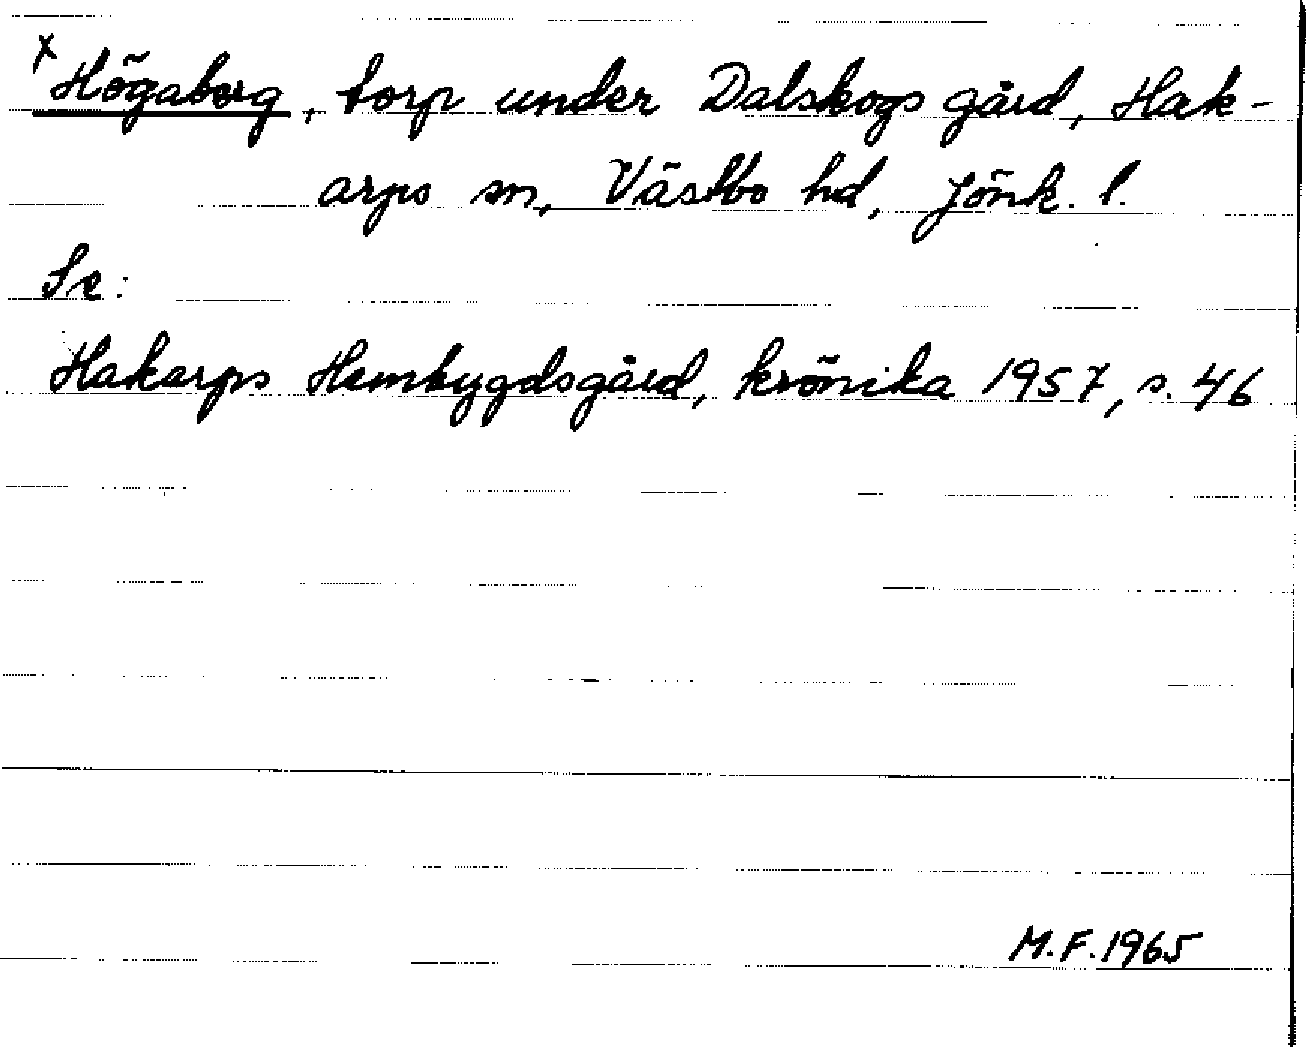 x Högaberg, torp under Dalskogs gård, Hak-
arps sn, Västbo hd, Jönk. l.
Se:
Hakarps Hembygdsgård, krönika 1957, s. 46
M.F. 1965